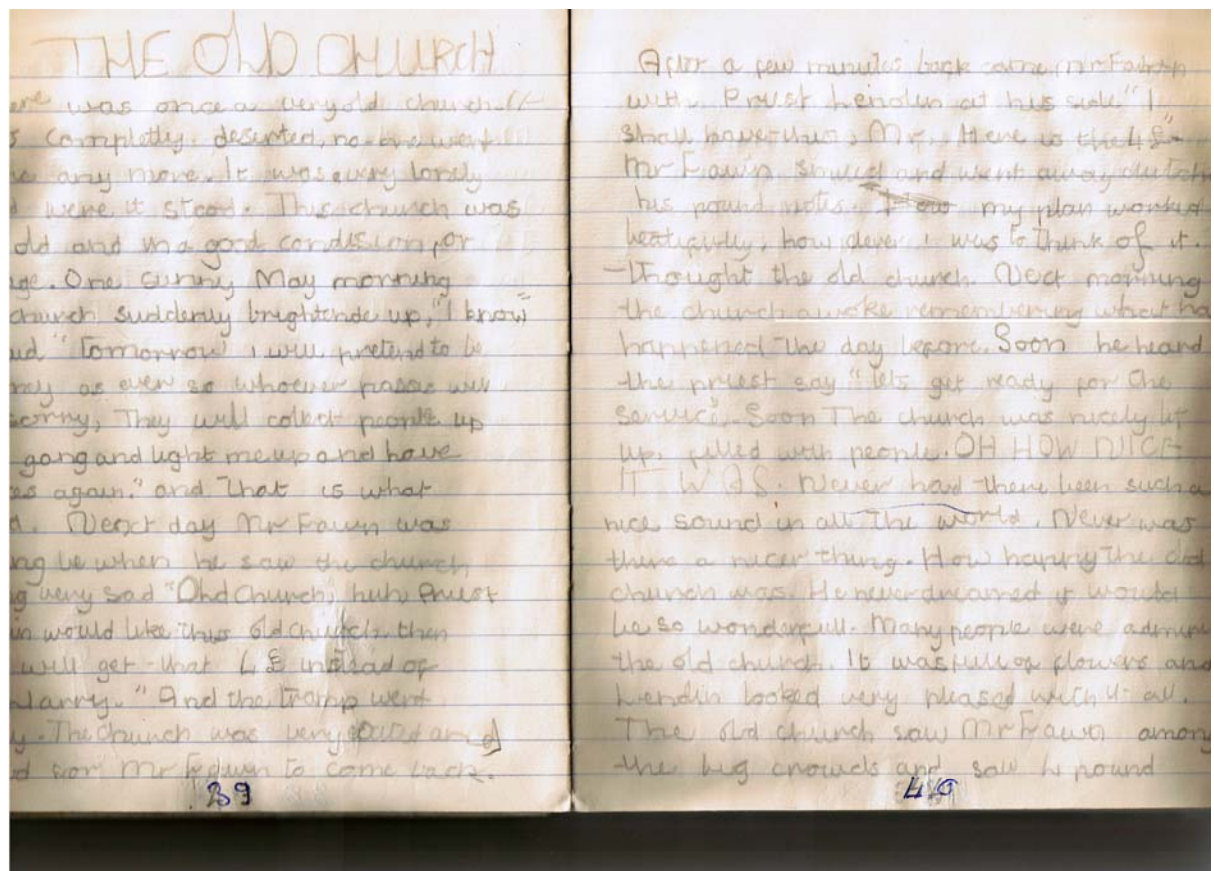 THE OLD CHURCH
ere was once a very old church. It
s completly deserted, no-one went
re any more. It was very lonely
d were it stood. This church was
old and in a good condision for
age. One sunny May morning
church suddenly brightende up, "I know"
id "Tomorrow i will pretend to be
nely as ever so whoever passe will
sorry, They will collect people up
gang and light me up and have
es again." and that is what
d. Next day Mr Fawn was
ng be when he saw the church
g very sad "Old Church, huh, Priest
in would like this old church then
will get that 4£ instead of
Larry." And the tramp went
y. The church was very and
d for Mr Fawn to come back.
39
After a few minutes back came Mr Fawn
with Priest Lendin at his side "I
shall have this, Mr, Here is the 4£"
Mr Fawn smiled and went away, clutchi
his pound notes. my plan worked
beatifully, how clever i was to think of it.
thought the old church. Next morning
the church awoke remembering what ha
happened the day before. Soon he heard
the priest say "lets get ready for the
service". Soon The church was nicely lit
up, filled with people. OH HOW NICE
IT WAS. Never had there been such a
nice sound in all the world. Never was
there a nicer thing. How happy the old
church was. He never dreamed it would
be so wonderfull. Many people were admiri
the old church. It was full of flowers and
Lendin looked very pleased with it all.
The old church saw Mr Fawn among
the big crowds and saw 4 pound
40